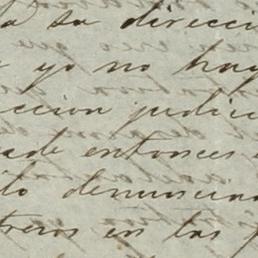 a su direcci
yo no hay
ccion judic
sde entonces
lo denuncia
treros en las